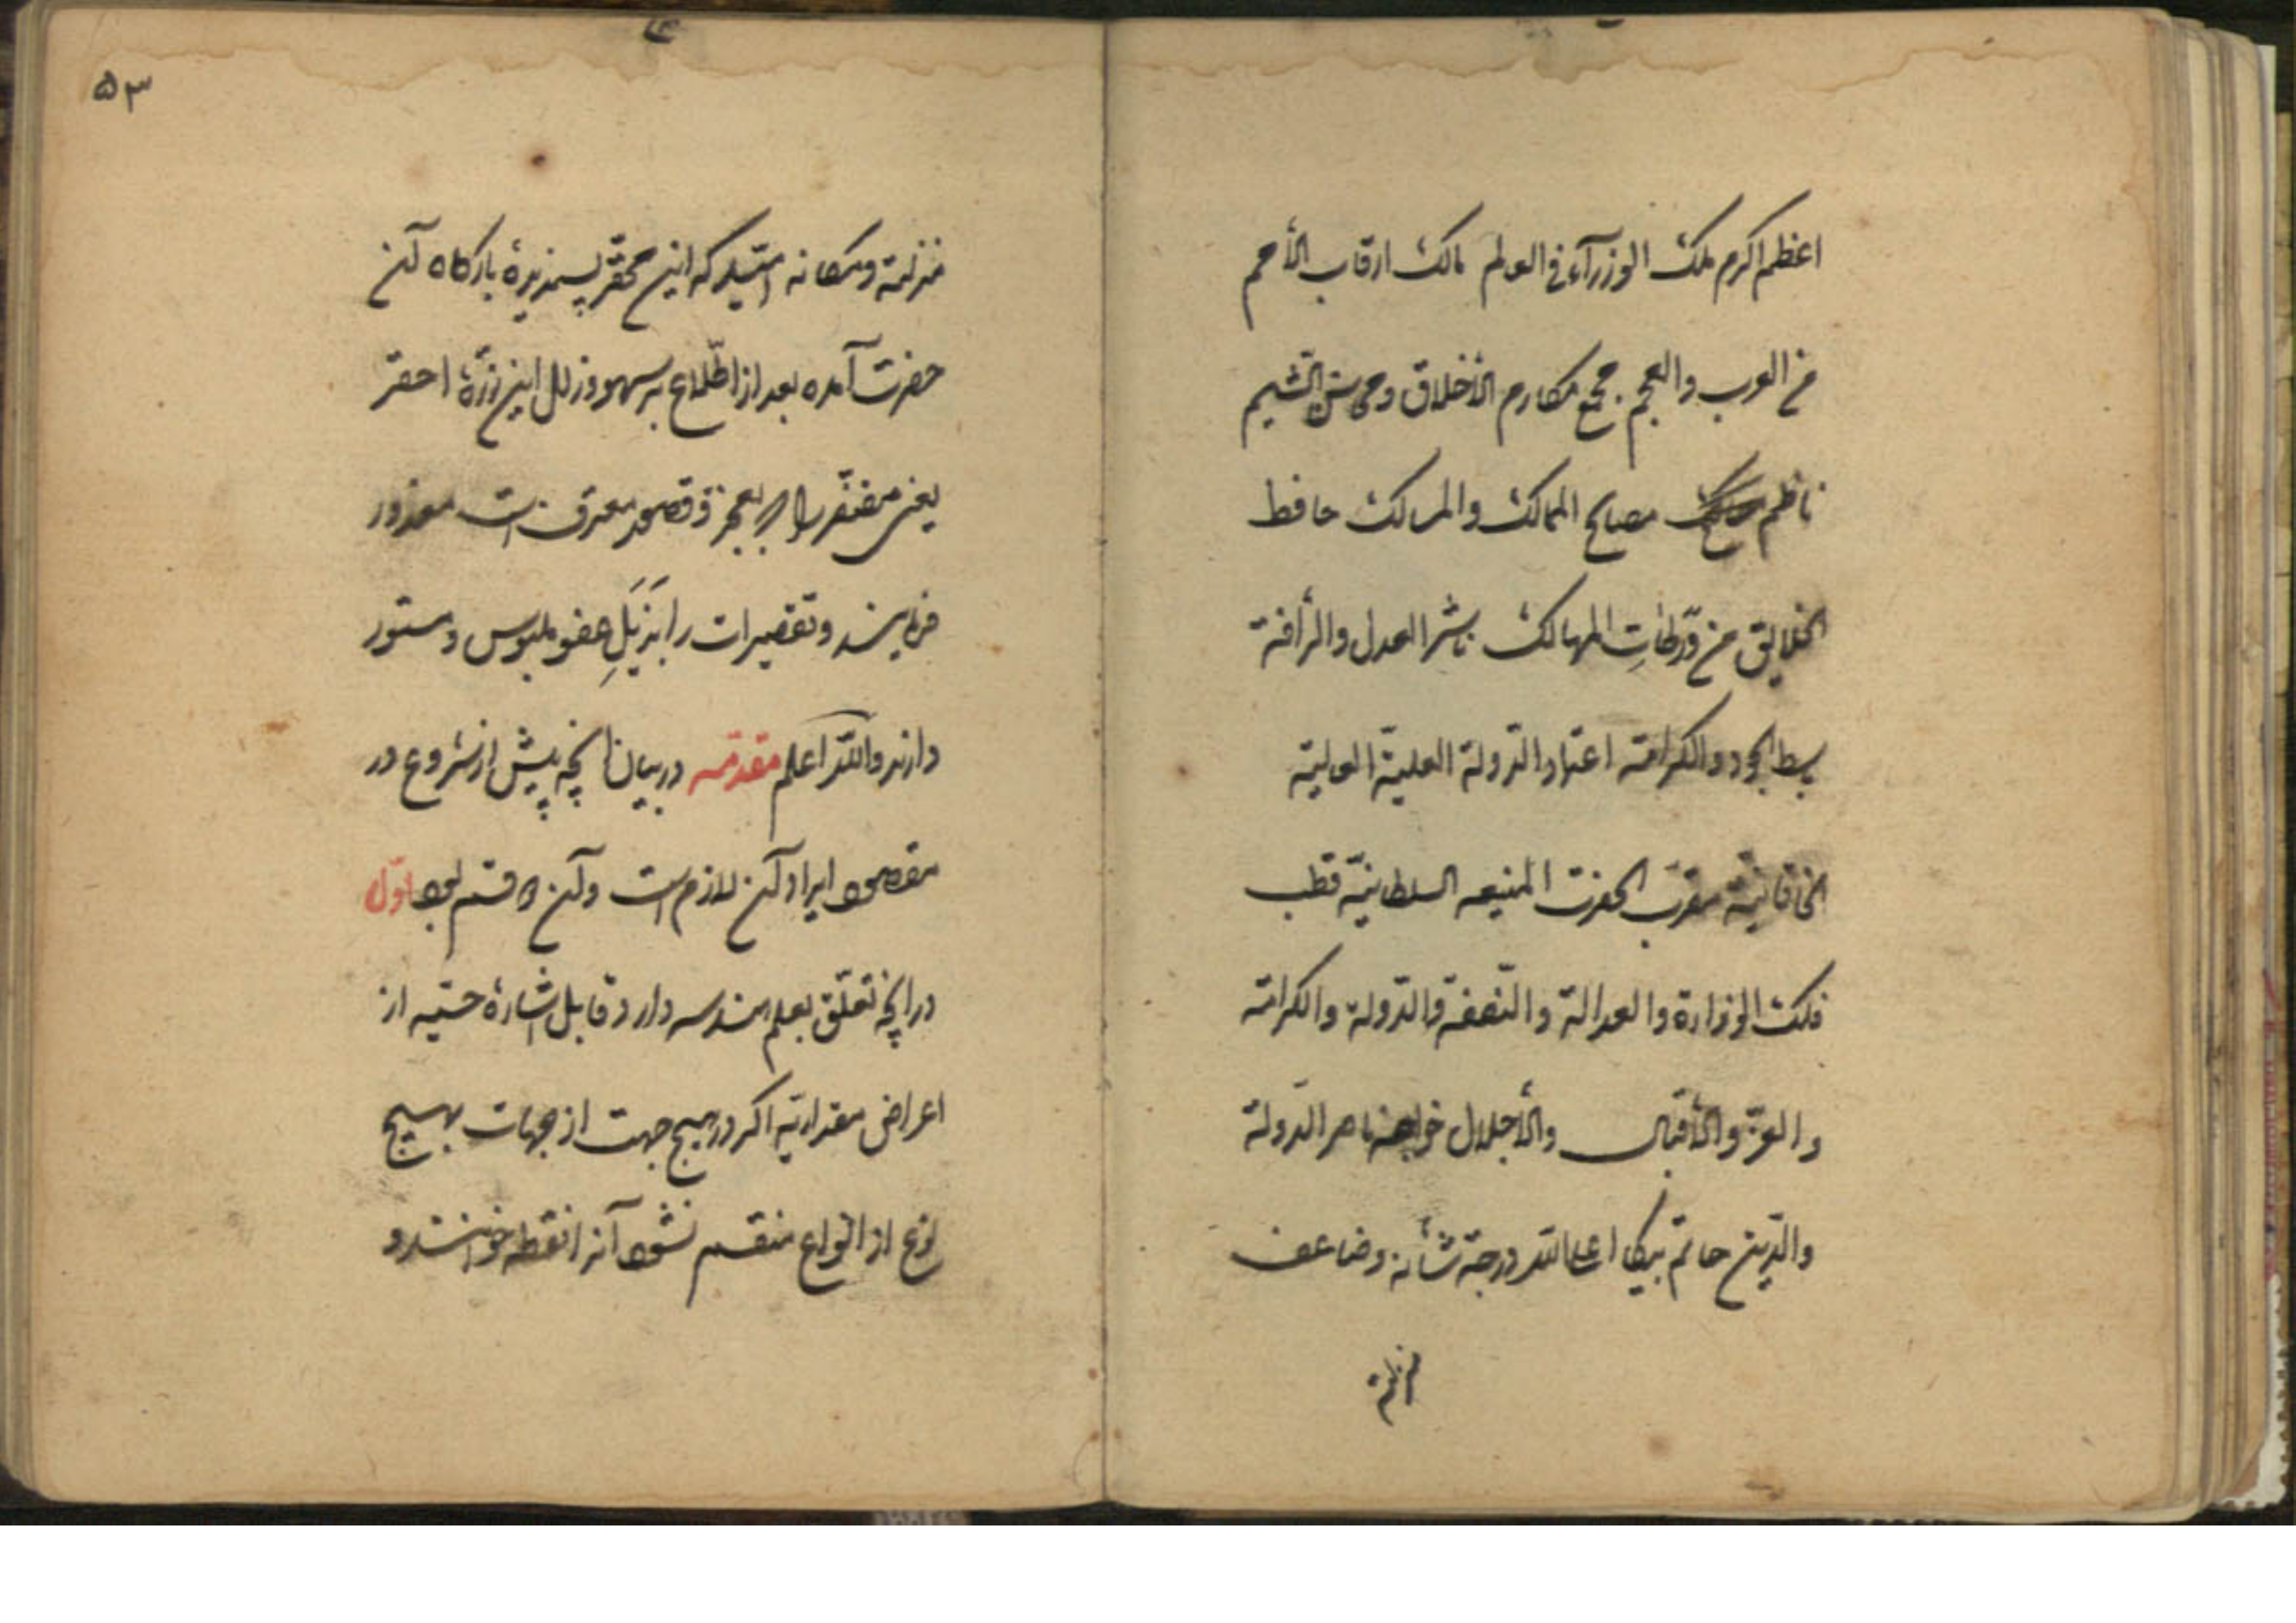 اعظم اکرم ملک الوزرآء فی العالم مالک ارقاب الأمم
من العرب والعجم مجمع مکارم الأخلاق ومحاسن الشیم
ناظم مصالح الممالک والمسالک حافظ
الخلایق من ورطات المهالک ناشر العدل والرأفة
باسط الجود والکرامة اعتماد الدولة العلیة العالیة
الخاقانیة مقرب الحضرت المنیعه السلطانیة قطب
فلک الوزارة والعدالة والنصفة والدولة والکرامة
والعز والأقبال والأجلال خواجه ناصر الدولة
والدین حاتم بیکا اعلی الله درجة شأنه وضاعف
منزلته
۵۳
منزلته ومکانه امید که این محقر پسندیدهٔ بارکاه آن
حضرت آمده بعد از اطلاع بر سهو وزلل این ذرهٔ احقر
یعنی مفتقر را که بعجز وقصور معترف است معذور
فرمایند وتقصیرات را بذیل عفو ملبوس ومستور
دارند والله اعلم مقدمه در بیان انچه پیش از شروع در
مقصود ایراد آن لازم است وآن دو قسم بود اول
در انچه تعلق بعلم هندسه دارد قابل اشارهٔ حسیه از
اعراض مقداریه اکر در هیچ جهت از جهات بهیچ
نوع از انواع منقسم نشود آنرا نقطه خوانند و